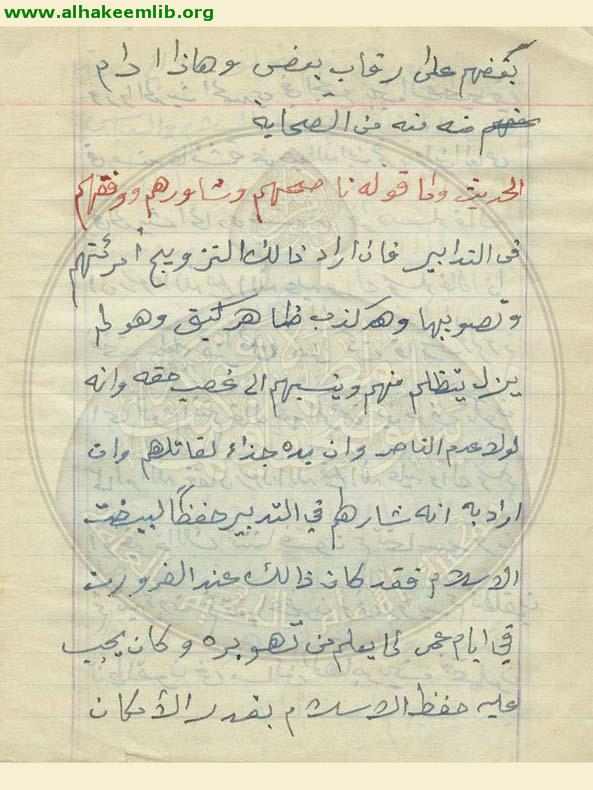 www.alhakeemlib.org
بعضهم على رقاب بعض وهاذا ادام
منه منه من الصحابة
الحديث ولما قوله ناصحهم وشاورهم ووفقهم
في التدابير فان اراد ذالك التزويج أمرئتهم
وتصويبها وهو كذب ظاهر كيف وهو لم
يزل يتظلم منهم وينسبهم الى غصب حقه وانه
لولا عدم الناصر وان يده جذاء لقاتلهم وان
اراد به انه شارهم في التدبير حفظاً لبيضت
الاسلام فقد كان ذالك عند الضرورت
في ايام عمر لما يعلم من تهوره وكان يجب
عليه حفظ الاسلام بقدر الأمكان